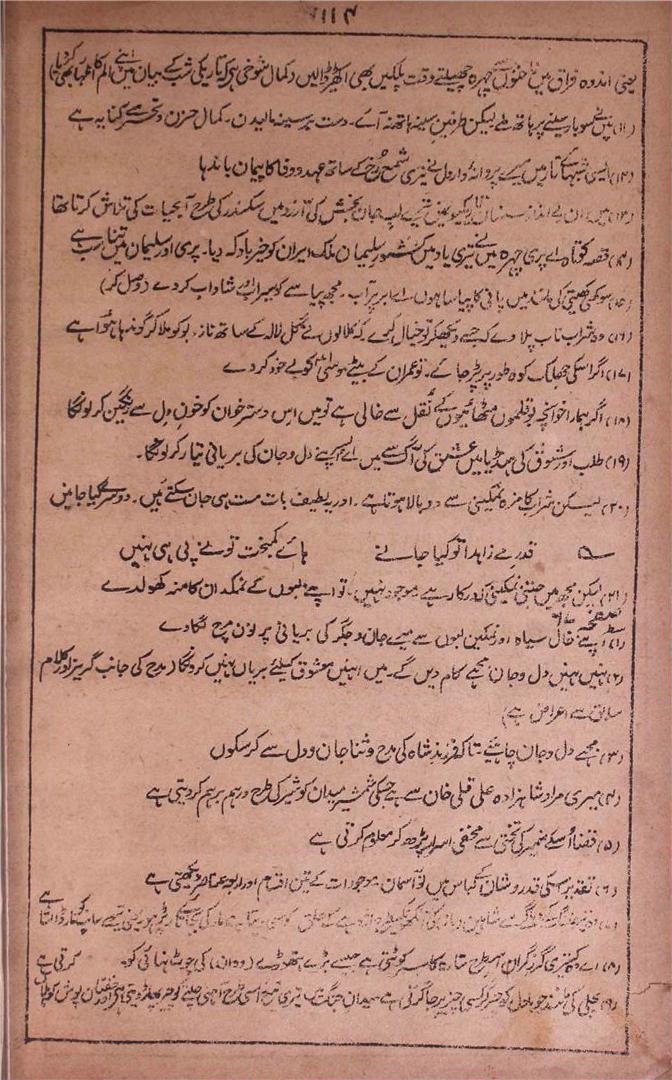 ۱۱۴
یعنی اندوہ فراق میں ناخنوں سے چہرہ چھیلتے وقت پلکیں بھی اکھڑ ڈالیں۔ کمال شوخی ہے کہ تاریکی شب کے بیان میں اپنے الم کا اظہار بھی کر دیا
میں نے سو بار سینے پر ہاتھ ملے لیکن طرفین سینہ ہاتھ نہ آئے۔ دست بر سینہ مالیدن۔ کمال حزن و تحسر سے کنایہ ہے
(۱۲) ایسی شبہائے تار میں میرے پروانہ وار دل نے تیری شمع رخ کے ساتھ عہد و وفا کا پیمان باندھا
(۱۳) میں ان بے انداز لب جان بخش کی آرزو میں سکندر کی طرح آبحیات کی تلاش کرتا تھا
(۱۴) قصہ کوتاہ اے پری چہرہ میں نے تیری یاد میں کشور سلیمان ملک ایران کو خیرباد کہ دیا۔ پری اور سلیمان میں تناسب ہے
(۱۵) سوکھی کھیتی کی مانند میں پانی کا پیاسا ہوں اے ابر پر آب۔ مجھ پیاسے کو سیراب اور شاداب کر دے (وصل کر)
(۱۶) وہ شراب ناب پلا دے کہ جسے دیکھ کر تو خیال کرے کہ کلالوں نے گل لالہ کے ساتھ تازہ بو کو ملا کر گوندھا ہوا ہے
(۱۷) اگر اسکی جھلک کوہ طور پر پڑ جائے۔ تو عمران کے بیٹے موسیٰ کو بے خود کر دے
(۱۸) اگر ہمارا خوانچہ بوقلموں مٹھائیوں کے نُقل سے خالی ہے تو میں اس دسترخوان کو خون دل سے رنگین کر لونگا
(۱۹) طلب اور شوق کی ہنڈیا میں عشق کی آگ سے میں اپنے دل و جان کی بریانی تیار کر لونگا۔
(۲۰) لیکن شراب کا مزہ نمکینی سے دوبالا ہوتا ہے۔ اور یہ لطیف بات مست ہی جان سکتے ہیں۔ دوسرے کیا جانیں
؎ قدر مے زاہدا تو کیا جانے ہائے کمبخت تو نے پی ہی نہیں
(۲۱) لیکن مجھ میں جتنی نمکینی درکار ہے موجود نہیں۔ تو اپنے لبوں کے نمکدان کا منہ کھول دے
صفحہ
(۱) اپنے خال سیاہ اور نمکین لبوں سے میرے جان و جگر کی بریانی پر لون مرچ لگا دے
(۲) نہیں نہیں دل و جان مجھے کام دیں گے۔ میں انہیں معشوق کیلئے بریاں نہیں کرونگا (مدح کی جانب گریز اور کلام
سابق سے اعراض ہے)
(۳) مجھے دل و جان چاہئیے تاکہ فرزند شاہ کی مدح و ثنا جان و دل سے کر سکوں
(۴) میری مراد شاہزادہ علی قلی خان سے ہے جسکی شمشیر میدان کو شیر کی طرح درہم برہم کر دیتی ہے
(۵) قضا اُسکے ضمیر کی تختی سے مخفی اسرار پڑھ کر معلوم کرتی ہے
(۶) تقدیر اسکی قدر و شان کے لباس میں نو آسمان موجودات کے تین اقسام اور اربعہ عناصر دیکھتی ہے
(۸) اے کہ تیری گرز گراں اس طرح ستارہ کا سر کوٹتی ہے جیسے بڑے ہتھوڑے کی چوٹ نہائی کو۔ کرتی ہے
(۹) بجلی کی مانند جو بادل کو چیر کر کسی چیز پر جا گرتی ہے میدان جنگ میں تیری تیغ اسی طرح آہنی